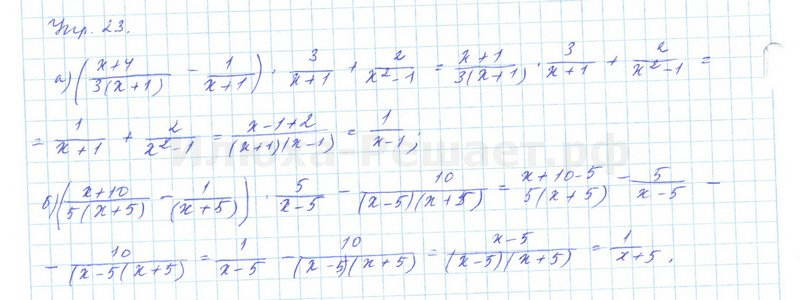 Упр. 23.
а) ((x+4)/(3(x+1)) − 1/(x+1)) · 3/(x+1) + 2/(x²−1) = (x+1)/(3(x+1)) · 3/(x+1) + 2/(x²−1) =
= 1/(x+1) + 2/(x²−1) = (x−1+2)/((x+1)(x−1)) = 1/(x−1);
б) ((x+10)/(5(x+5)) − 1/(x+5)) · 5/(x−5) − 10/((x−5)(x+5)) = (x+10−5)/(5(x+5)) − 5/(x−5) −
− 10/((x−5(x+5)) = 1/(x−5) − 10/((x−5)(x+5)) = (x−5)/((x−5)(x+5)) = 1/(x+5).